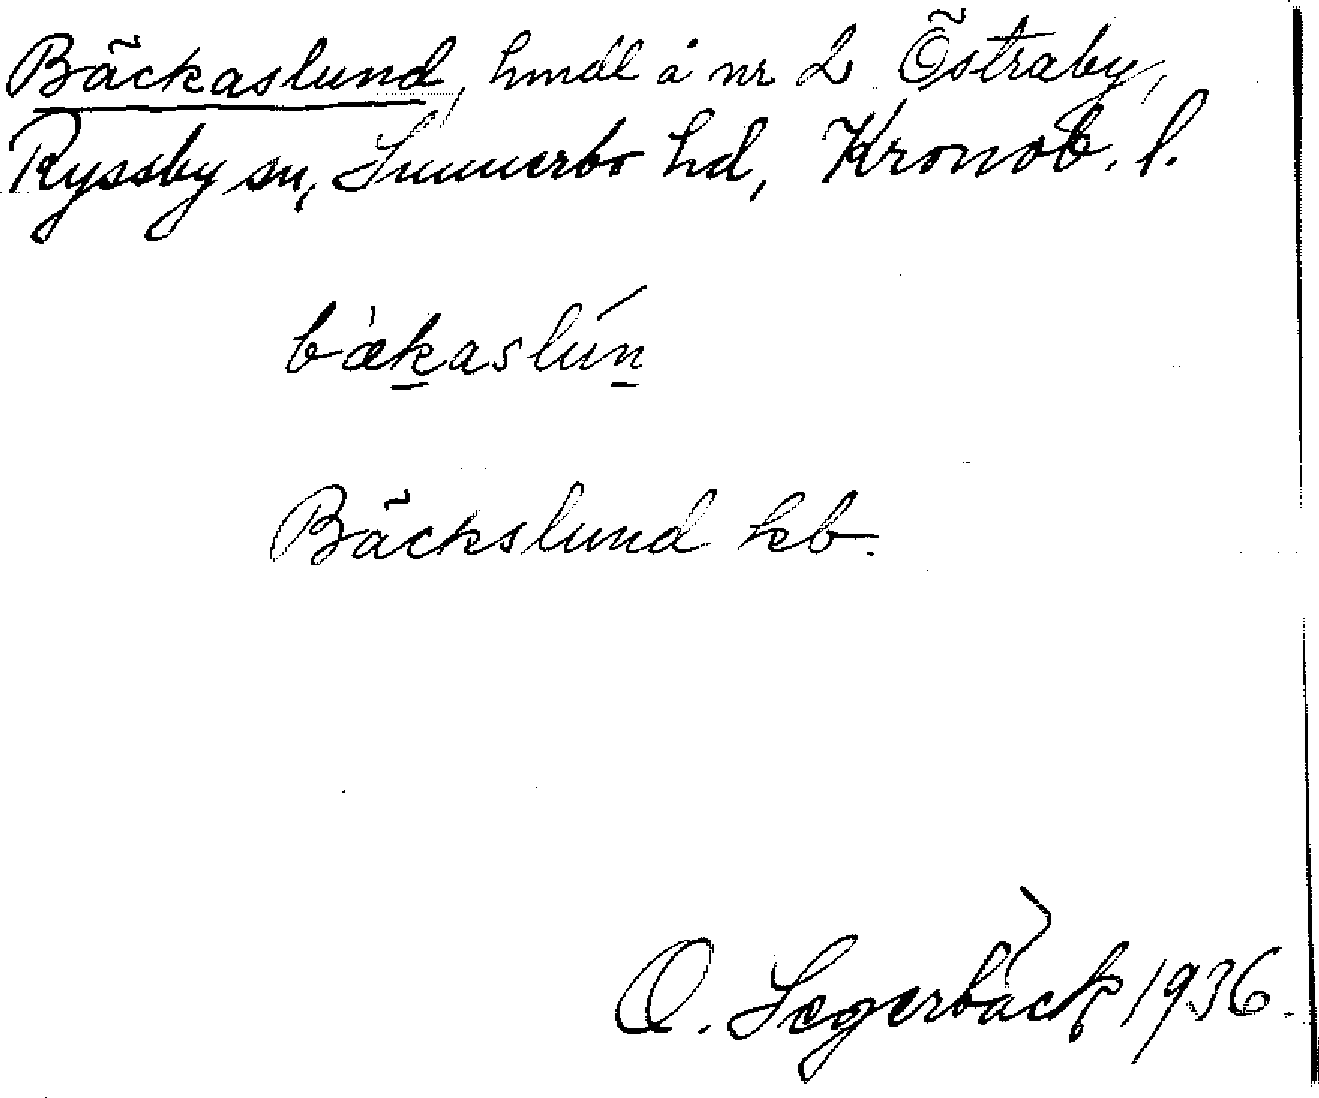 Bäckaslund, hmdl å nr 2 Östraby,
Ryssby sn, Sunnerbo hd, Kronob. l.
bæ̀kaslún
Bäckslund kb.
O. Segerbäck 1936.